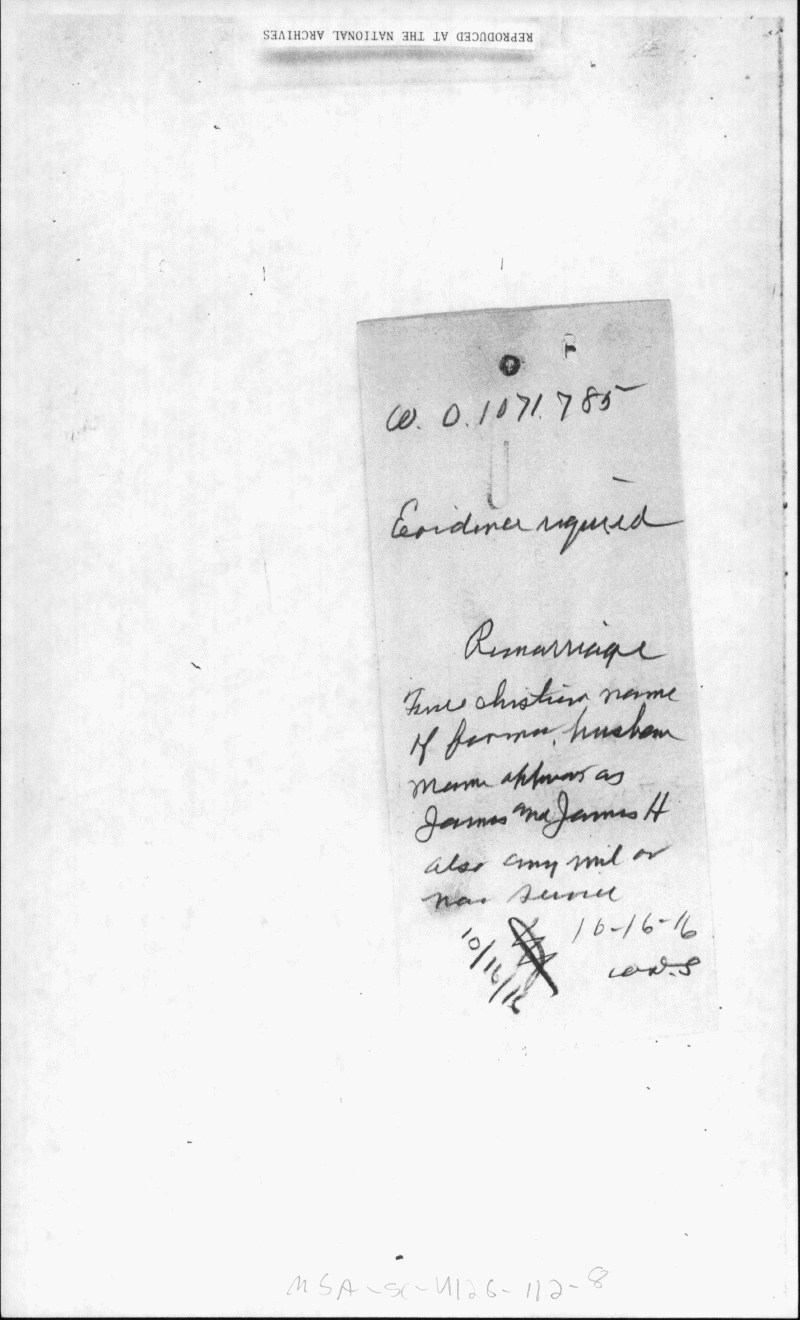 REPRODUCED AT THE NATIONAL ARCHIVES
W. O. 1071.785
Evidence required
Remarriage
True christian name
of former husban
Name appears as
James and James H
also any mil or
nav service
10-16-16
10/16/16
MSA-SC-4126-112-8